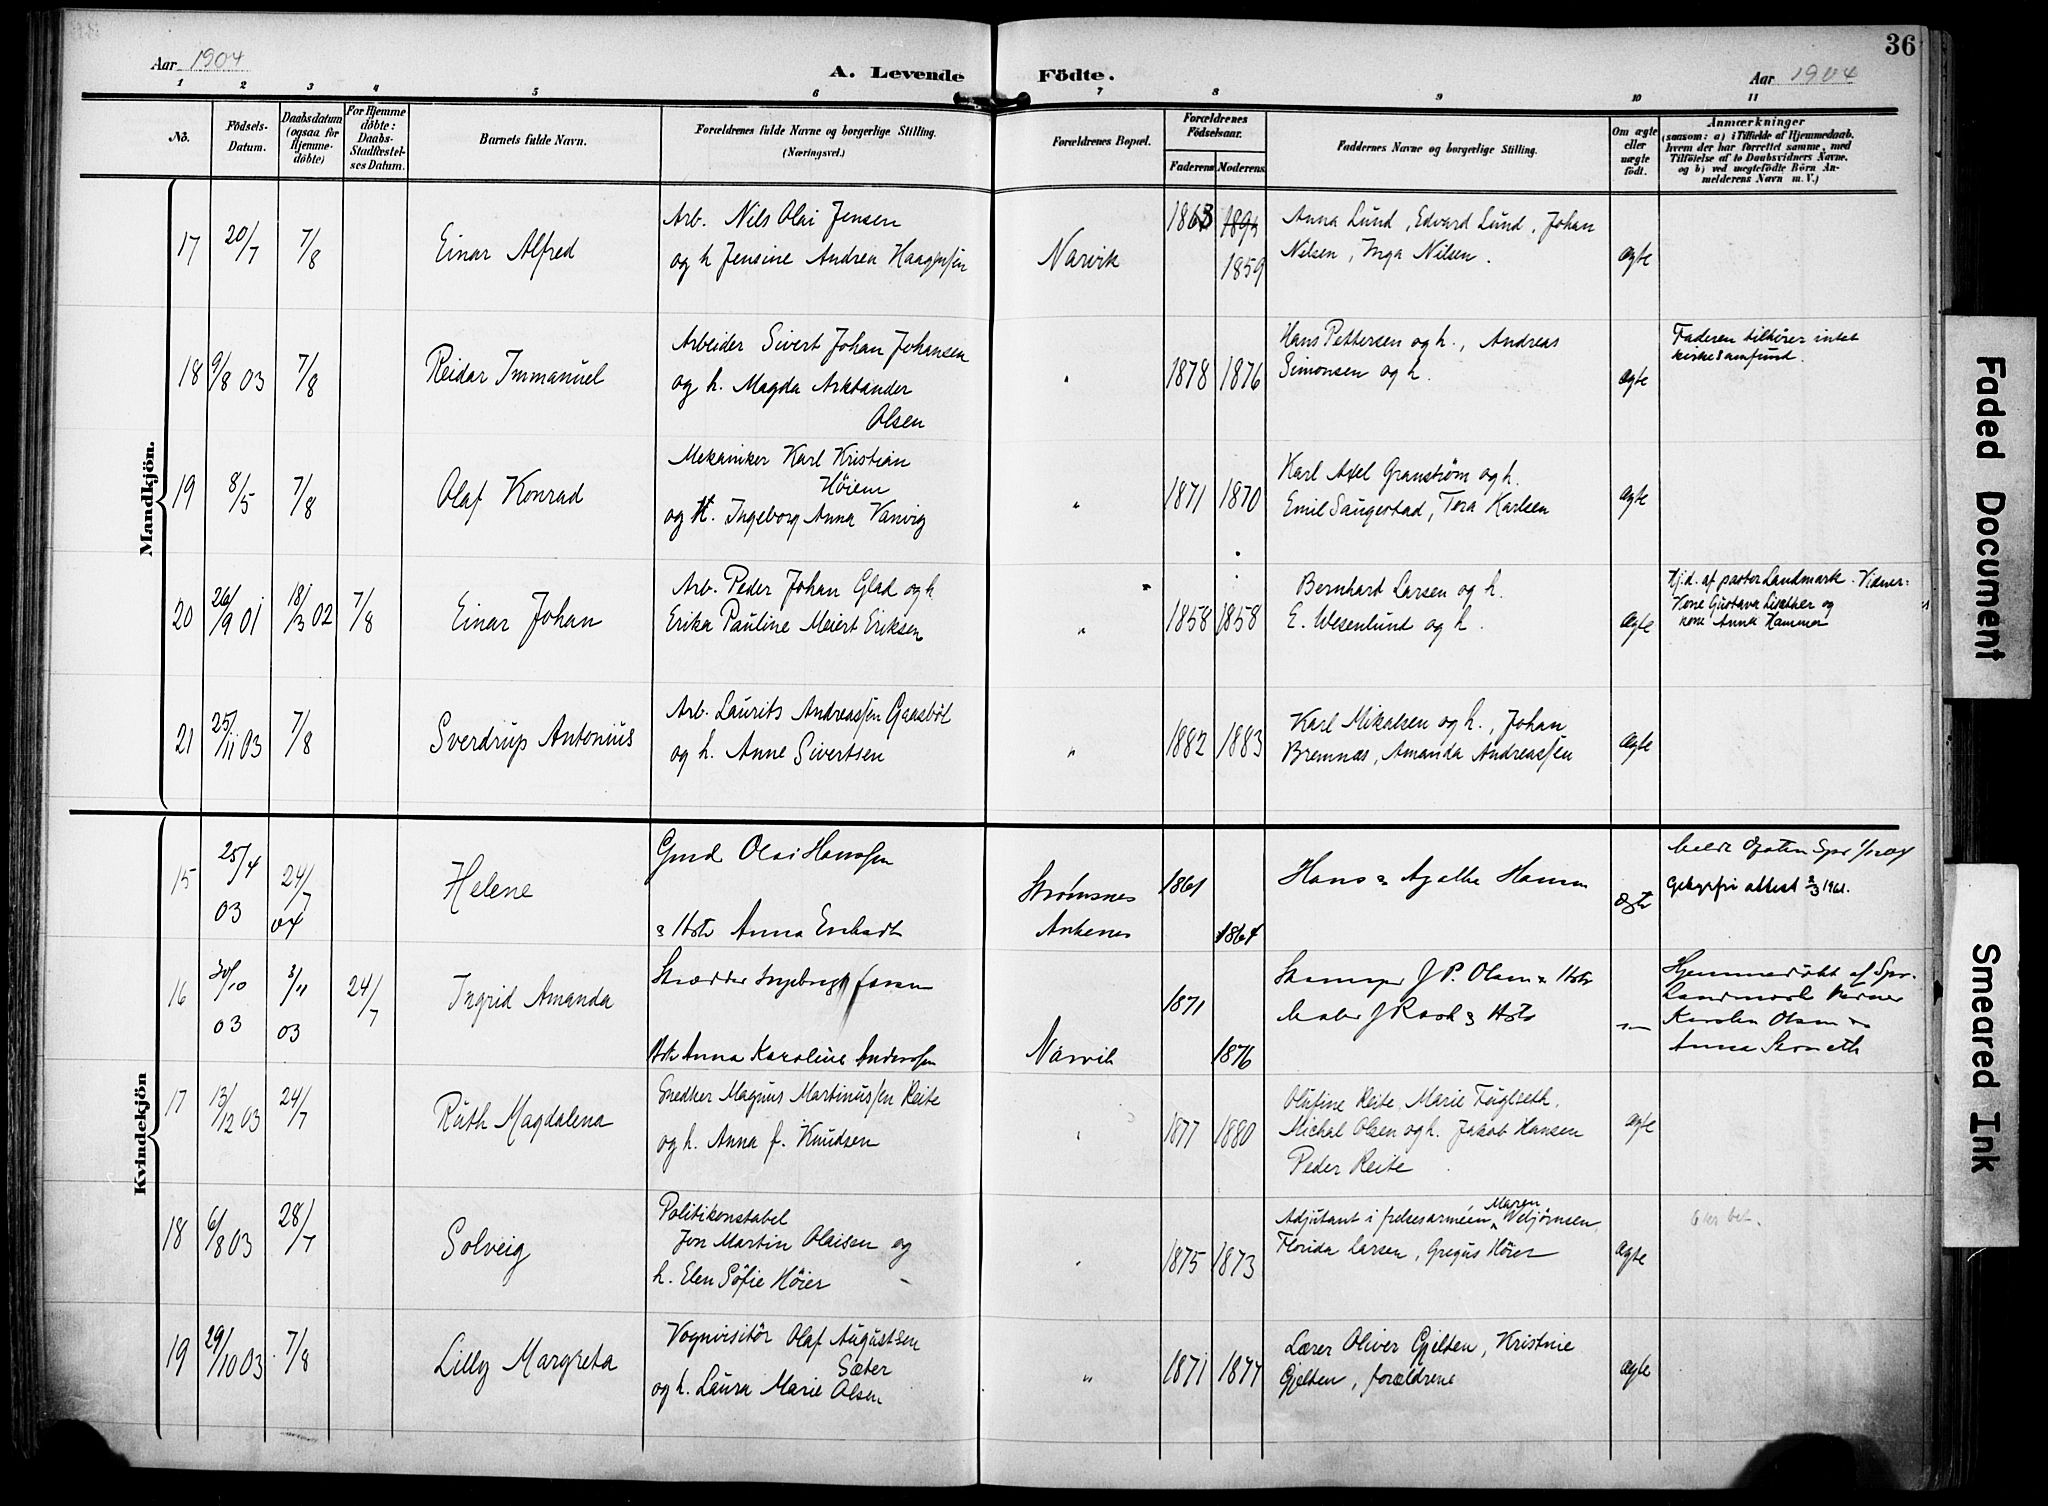 Aar 1904
A. Levende Födte.
Aar 1904
36
1 2 3 4 5 6 7 8 9 10 11
No.
Födsels-Datum.
Daabsdatum (ogsaa för Hjemme-döbte)
For Hjemme döbte: Daabs-Stadfæstel-ses Datum.
Barnets fulde Navn.
Forældrenes fulde Navne og borgerlige Stilling. (Næringsvei.)
Forældrenes Bopæl.
Forældrenes Födselsaar.
Faderens Moderens
Faddernes Navne og borgerlige Stilling.
Om ægte eller uægte födt.
Anmærkninger
(saasom: a) i Tilfælde af Hjemmedaab, hvem der har forrettet samme, med Tilföielse af to Daabsvidners Navne, og b) ved uægtefödte Börn An-melderens Navn m. V.)
Mandkjön.
17 20/7 7/8 Einar Alfred
Arb. Nils Olai Jensen
og h Jensine Andrea Haagensen
Narvik 1863 1859
Anna Lund, Edvard Lund, Johan
Nilsen, Inga Nilsen.
ægte
18 9/8 03 7/8 Reidar Immanuel
Arbeider Sivert Johan Johansen
og h. Magda Arktander
Olsen
" 1878 1876
Hans Pettersen og h., Andreas
Simonsen og h.
ægte
Faderen tilhører intet
kirkesamfund.
19 8/5 7/8 Olaf Konrad
Mekaniker Karl Kristian
Høiem
og H. Ingeborg Anna Vanvig
" 1871 1870
Karl Axel Granstrøm og h.
Emil Saugestad, Tora Karlsen
ægte
20 26/9 01 18/3 02 7/8 Einar Johan
Arb. Peder Johan Glad og h
Erika Pauline Meiert Eriksen
" 1858 1858
Bernhard Larsen og h.
E. Wesenlund og h.
ægte
Hj.d. af pastor Landmark. Vidner:
Kone Gustava Lisether og
kone Anna Hammer
21 25/11 03 7/8 Sverdrup Antonius
Arb. Laurits Andreassen Gaasbøl
og h. Anne Sivertsen
" 1882 1883
Karl Mikalsen og h., Johan
Bremnæs, Amanda Andreassen
ægte
Kvindekjön
15 25/4 03 24/7 04 Helene
Gmd Olai Hanssen
& Hstr Anna Enhardt
Strømsnes
Ankenes
1861 1864
Hans & Agathe Hansen
ægte
Meldt Ofoten Spr
attest 2/3 1961.
16 30/10 03 3/11 03 24/7 Ingrid Amanda
Skrædder Ingebrigt
Hstr Anna Karoline Anderssen
Narvik
1871 1876
J P. Olsen & Hstr
Maler J Rask & Hstr
Hjemmedøbt af Spr.
Landmark Vidner
Karoline Olsen &
Anna
17 13/12 03 24/7 Ruth Magdalena
Snedker Magnus Martinussen Reite
og h. Anna f. Knudsen
" 1877 1880
Olufine Reite, Marie Fuglseth,
Michal Olsen og h. Jakob Hansen
Peder Reite
ægte
18 6/8 03 28/7 Solveig
Politikonstabel
Jon Martin Olaisen og
h. Elen Sofie Høier
" 1875 1873
Adjutant i frelsesarmeen, Maren Vebjørnsen,
Florida Larsen, Gregus Høier
ægte
19 29/10 03 7/8 Lilly Margreta
Vognvisitør Olaf Augustsen
Sæter
og h. Laura Marie Olsen
" 1871 1877
Lærer Oliver Gjelten, Kristine
Gjelten, forældrene
ægte
Faded Document
Smeared Ink